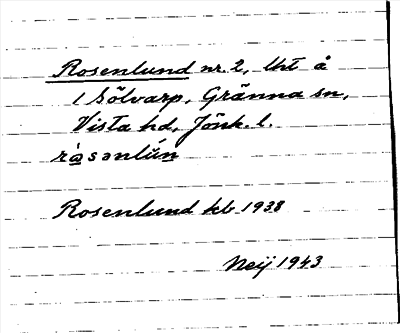 Rosenlund nr. 2, lht å
1 Sölvarp, Gränna sn,
Vista hd, Jönk. l.
ròsənlún
Rosenlund kb 1938
Neij 1943